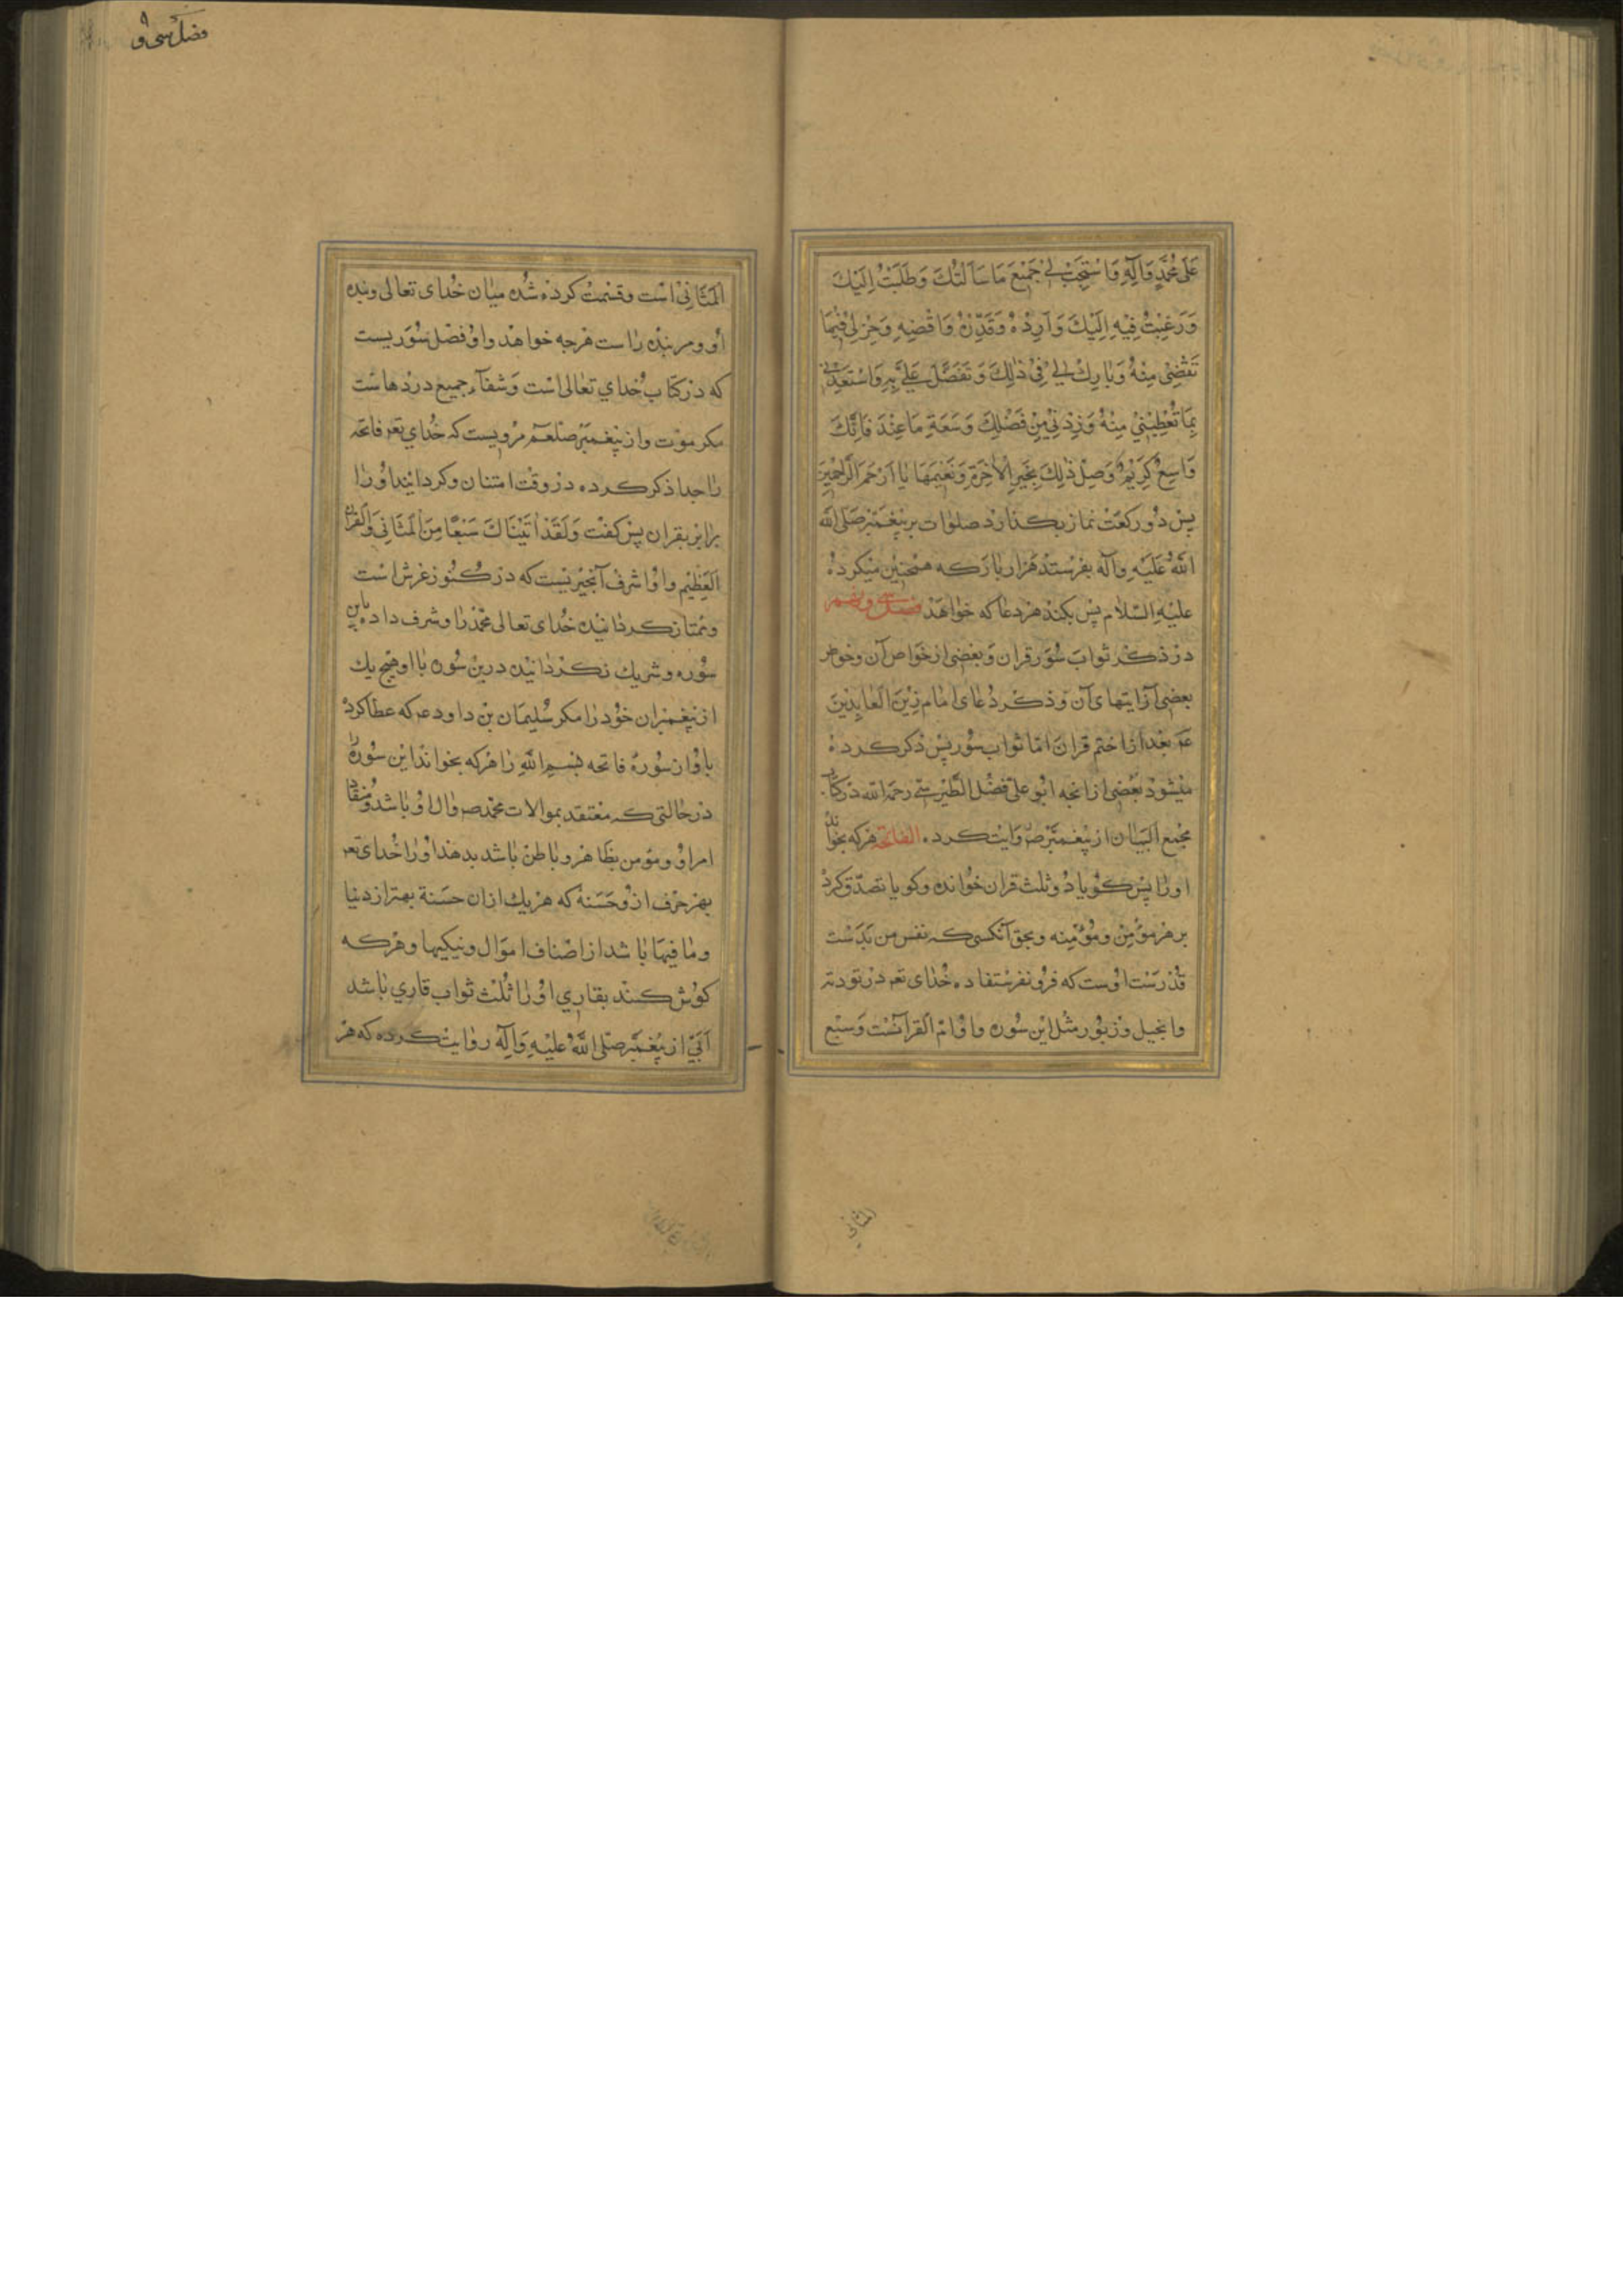 عَلَى مُحَمَّدٍ وَآلِهِ وَاسْتَجِبْ لِي جَمِيعَ مَا سَأَلْتُكَ وَطَلَبْتُ إِلَيْكَ
وَرَغِبْتُ فِيهِ إِلَيْكَ وَأَرِدْهُ وَقَدِّرْهُ وَاقْضِهِ وَخِرْ لِي فِيمَا
تَقْضِي مِنْهُ وَبَارِكْ لِي فِي ذٰلِكَ وَتَفَضَّلْ عَلَيَّ بِهِ وَاسْعِدْنِي
بِمَا تُعْطِينِي مِنْهُ وَزِدْنِي مِنْ فَضْلِكَ وَسَعَةِ مَا عِنْدَكَ فَإِنَّكَ
وَاسِعٌ كَرِيمٌ وَصِلْ ذٰلِكَ بِخَيْرِ الْآخِرَةِ وَنَعِيمِهَا يَا أَرْحَمَ الرَّاحِمِينَ
پس دو ركعت نماز بكذارد صلوات بر پيغمبر صلى الله
الله عليه وآله بفرستد هزار بار كه همچنين ميكرده
عليه السلام پس بكند هر دعا كه خواهد فصل سى ونهم
در ذكر ثواب سور قران وبعضى از خواص آن وخواص
بعضى از ايتهاى آن وذكر دعاى امام زين العابدين
عم بعد از ختم قران امّا ثواب سور پس ذكر كرده
ميشود بعضى از انچه ابو على فضل الطبرسي رحمه الله در كتاب
مجمع البيان از پيغمبر ص روايت كرده الفاتحة هر كه بخواند
او را پس كويا دو ثلث قران خوانده وكويا تصدّق كرد
بر هر مؤمن ومؤمنه وبحق آنكسى كه نفس من بدست
قدرت اوست كه فرو نفرستاده خداى تعه در توريه
وانجيل وزبور مثل اين سوره واو امّ القرآنست وسبع
المثاني
فصل سى و٩
المثاني است وقسمت كرده شده ميان خداى تعالى وبنده
او ومر بنده راست هر چه خواهد واو فضل سوريست
كه در كتاب خداي تعالى است وشفاء جميع دردهاست
مكر موت واز پيغمبر صلعم مرويست كه خداي تعه فاتحه
را جدا ذكر كرده در وقت امتنان وكردانيد او را
برابر بقران پس كفت وَلَقَدْ اٰتَيْنَاكَ سَبْعًا مِنَ الْمَثَانِي وَالْقُرْآنَ
الْعَظِيمَ واو اشرف آنچيزيست كه در كنوز عرش است
وممتاز كردانيده خداى تعالى محمد را وشرف داده باين
سوره وشريك نكردانيده درين سوره با او هيچ يك
از پيغمبران خود را مكر سليمان بن داود عم كه عطا كرد
باو از سوره فاتحه بسم الله را هر كه بخواند اين سوره را
در حالتى كه معتقد بموالات محمد ص وال او باشد ومنقاد
امر او ومومن بظاهر وباطن باشد بدهد او را خداى تعه
بهر حرف ازو حسنة كه هر يك ازان حسنة بهتر از دنيا
وما فيها باشد از اصناف اموال ونيكيها وهر كه
كوش كند بقاري او را ثلث ثواب قاري باشد
اُبَيّ از پيغمبر صلى الله عليه وآله روايت كرده كه هر